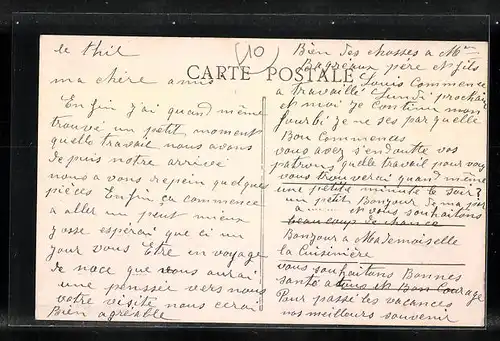 le thil
(10)
CARTE POSTALE
ma chère amis
Enfin j'ai quand même
trouvé un petit moment
quelle travail nous avons
depuis notre arrivée
nous a vous repein quelques
pièces Enfin ça commence
a aller un peut mieux
Josse espérai que ci un
jour vous Etre en voyage
de noce que vous aurai
une pensée vers nous
votre visite nous cerai
Bien agréable
Bien des chosses a Mr
père et fils
Louis Commence
a travaillé Lundi prochain
et moi je continu mon
fourbi je ne ses par quelle
Bou Commences
vous avez s'endoutte vos
patrons quelle travail pour vous
vous trouverai quand même
une petite minute le soir ?
un petit Bonjour de ma part
a ...... et vous souhaitons
beaucoup de chance
Bonjour a Mademoiselle
la Cuisinière
vous souhaitons Bonnes
santé a tous et Bon Courage
Pour passé les vacances
nos meilleurs souvenir